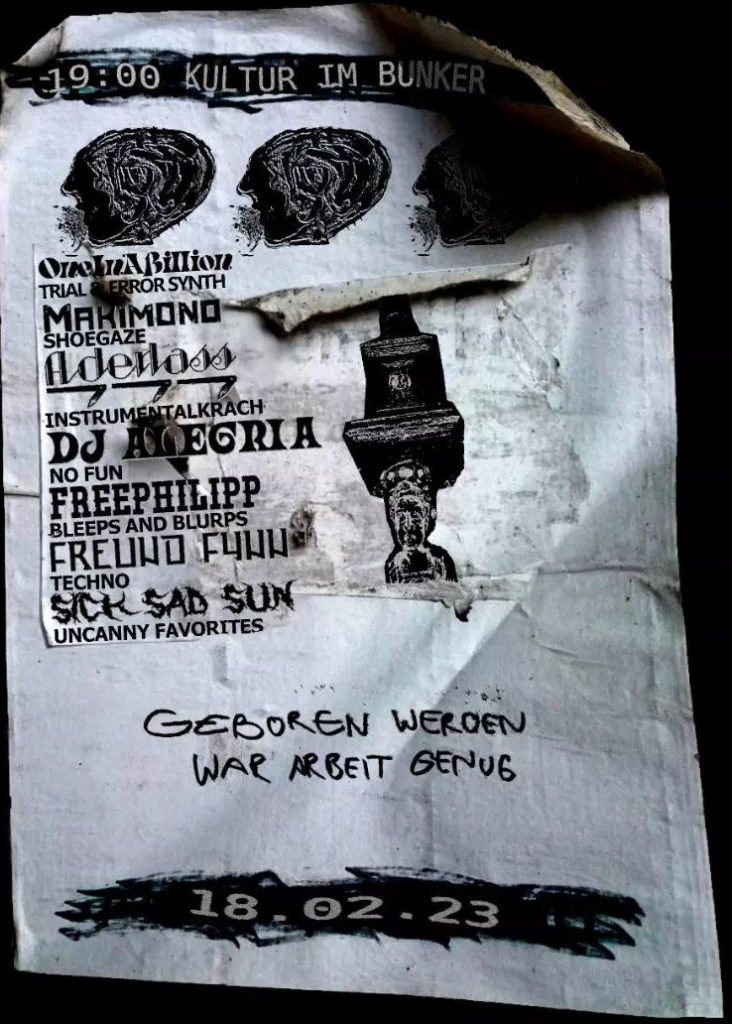 19:00 KULTUR IM BUNKER
OneInABillion
TRIAL & ERROR SYNTH
MAKIMONO
SHOEGAZE
Aderlass
INSTRUMENTALKRACH
DJ ALEGRIA
NO FUN
FREEPHILIPP
BLEEPS AND BLURPS
FREUND FYNN
TECHNO
SICK SAD SUN
UNCANNY FAVORITES
GEBOREN WERDEN
WAR ARBEIT GENUG
18.02.23